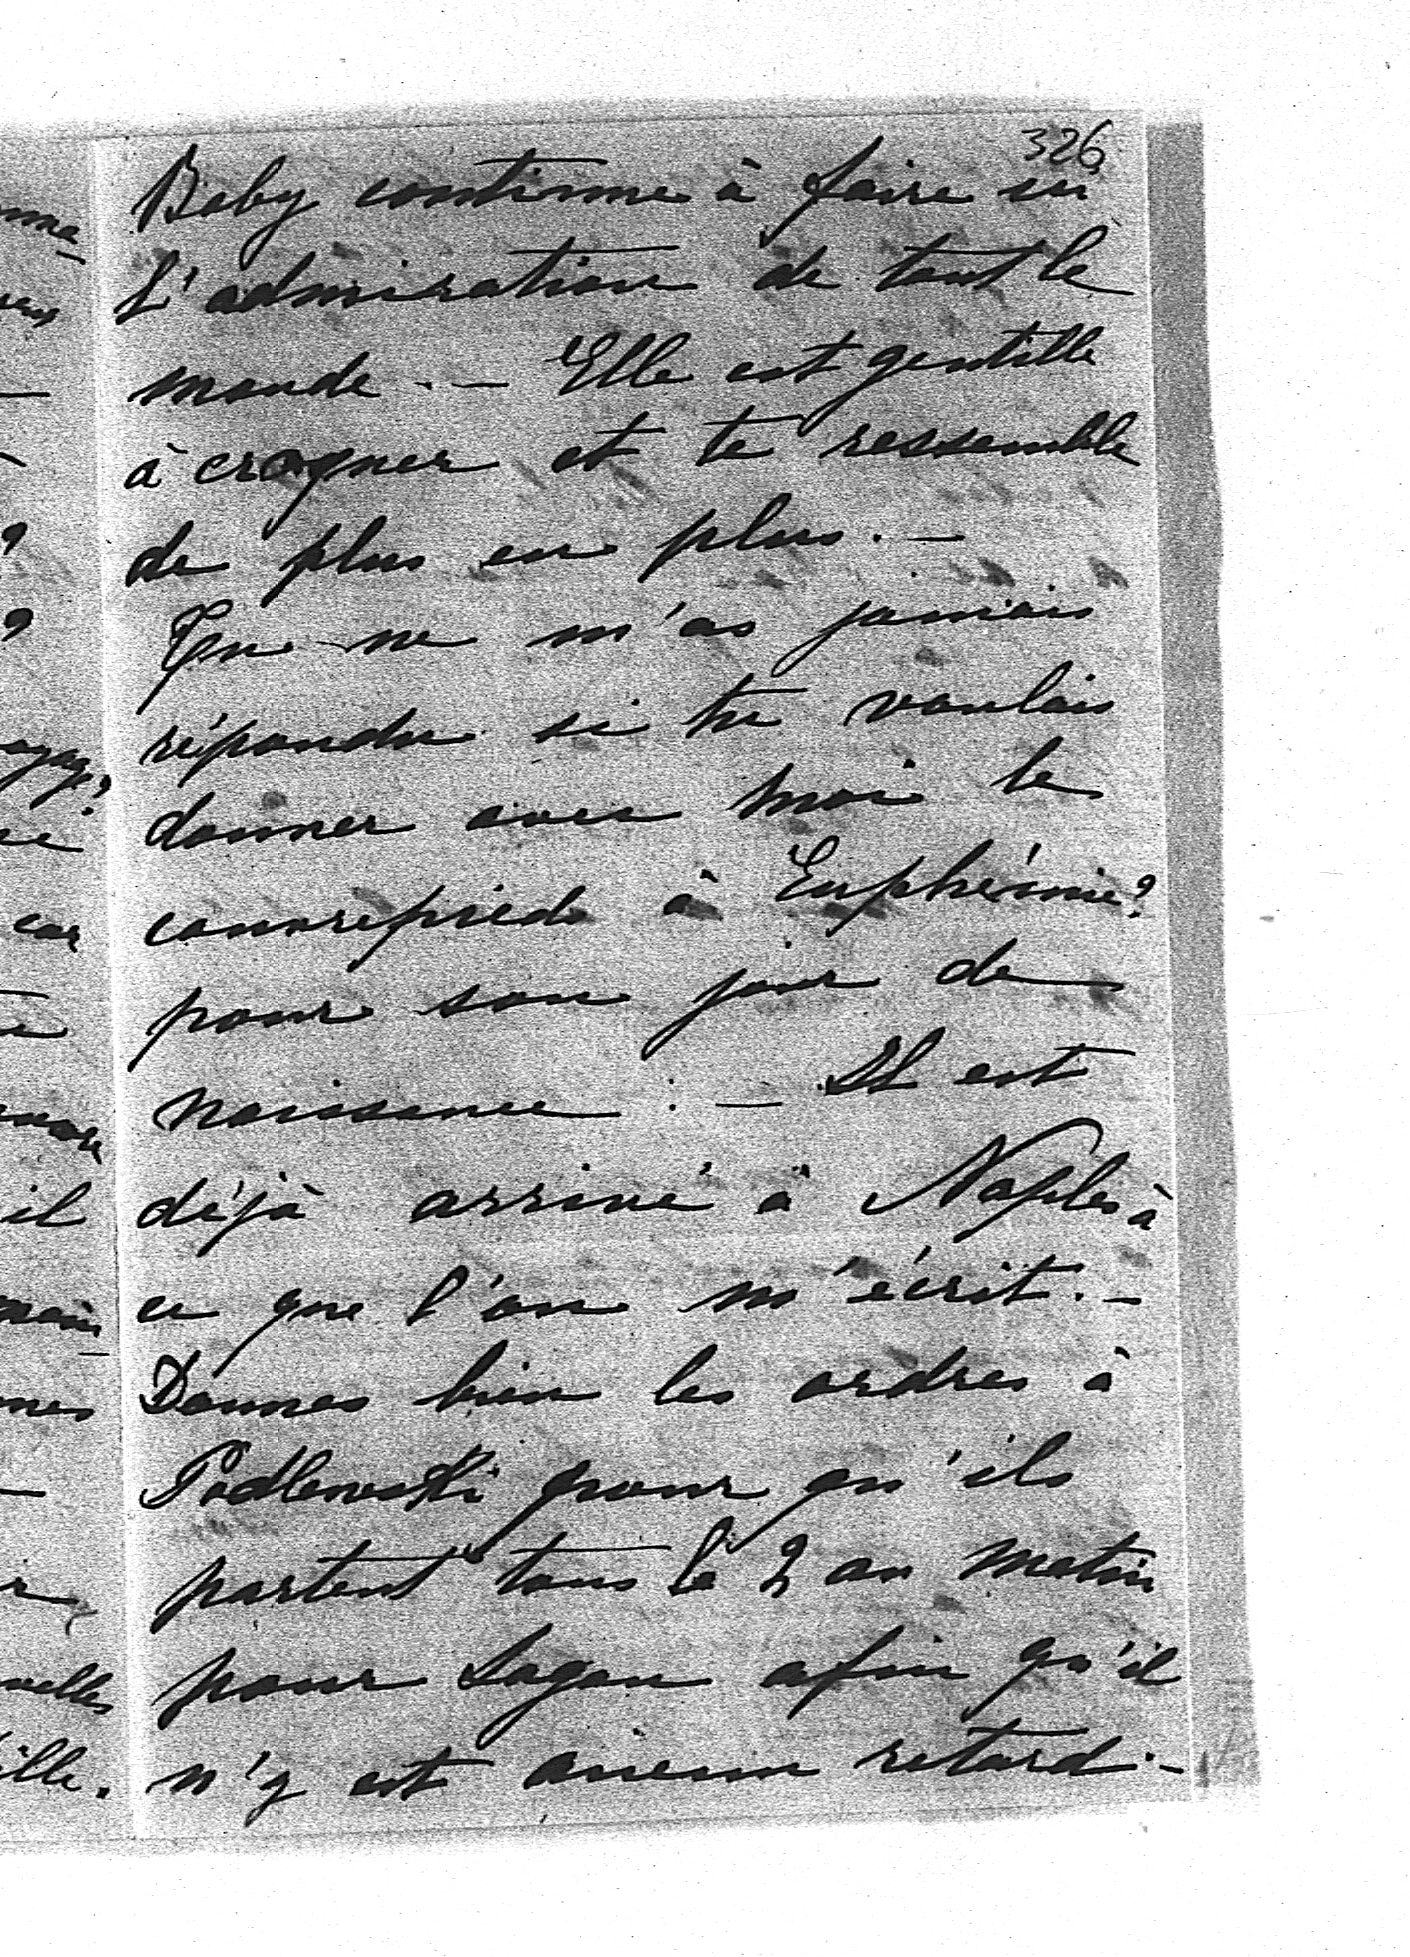 326
Baby continue à faire ici
l'admiration de tout le
monde. — Elle est gentille
à croquer et te ressemble
de plus en plus. —
Tu ne m'as jamais
répondu si tu voulais
donner avec moi le
couvrepied à Euphémie?
pour son jour de
naissance. — Il est
déjà arrivé à Naples à
ce que l'on m'écrit. —
Donnes bien les ordres à
Podlewski pour qu'ils
partent tous le 2 au matin
pour Sagan afin qu'il
n'y est aucun retard. —